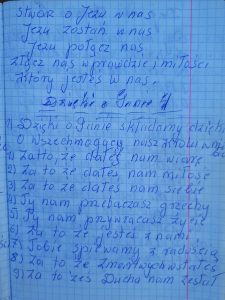 stwór o Jezu w nas
Jezu zostań w nas
Jezu połącz nas
złącz nas w prawdzie i miłości
który jesteś w nas.
Dzięki o Panie
1) Dzięki o Panie składamy dzięki
O wszechmogący nasz
1) Za to, że dałeś nam wiarę
2) Za to że dałeś nam miłość
3) Za to że dałeś nam siebie
4) Ty nam przebaczasz grzechy
5) Ty nam przywracasz życie
6) Za to że jesteś z nami
7) Tobie śpiewamy z radością
8) Za to że zmartwychwstałeś
9) Za to żeś Ducha nam zesłał